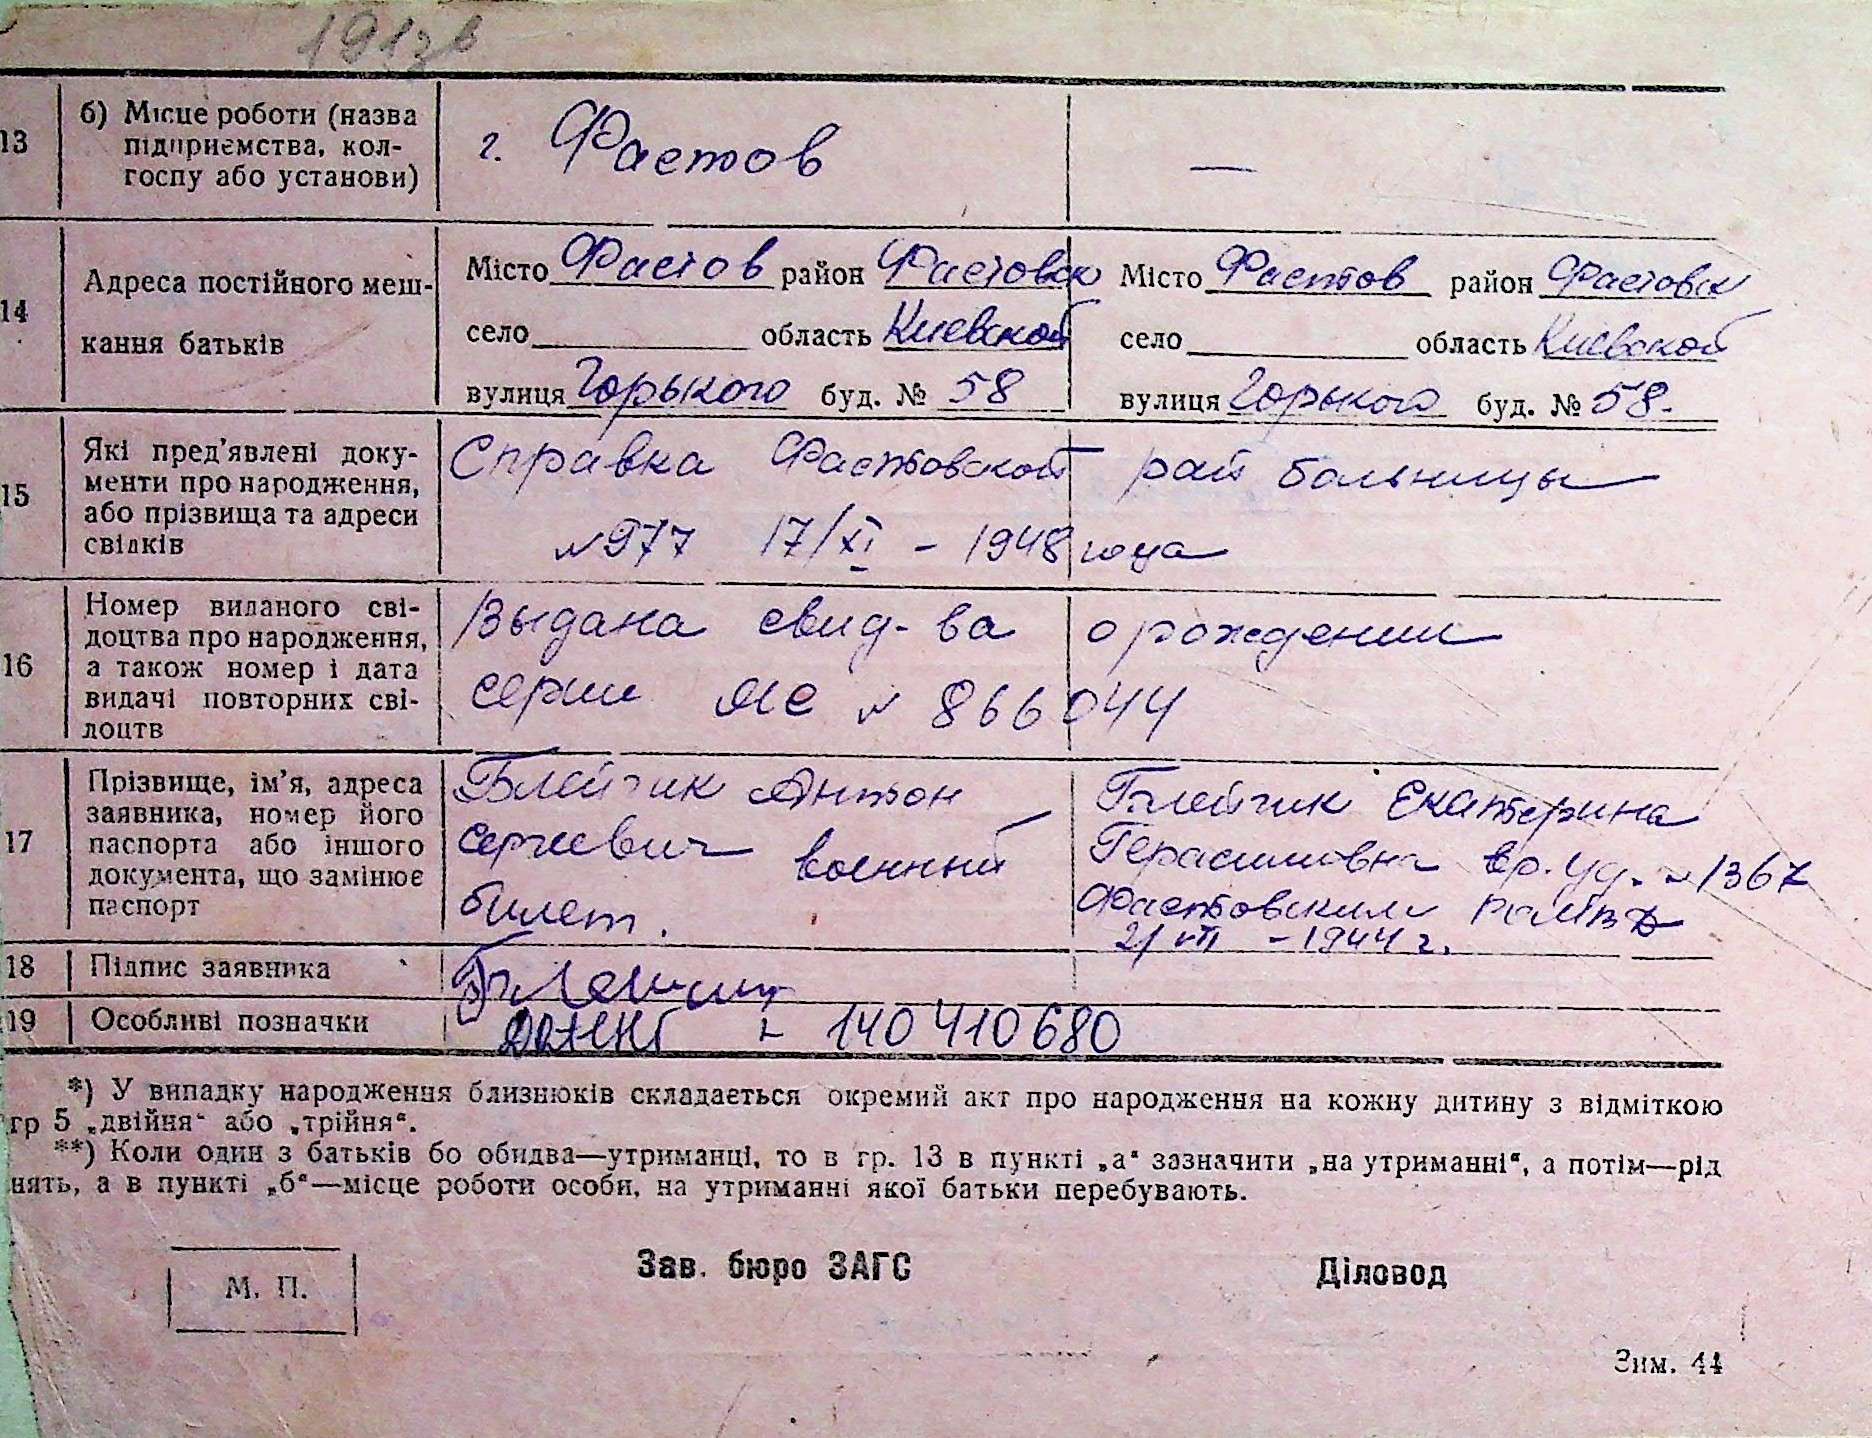 13 б) Місце роботи (назва підприємства, колгоспу або установи) г. Фастов —
14 Адреса постійного меш-
кання батьків
Місто Фастов район Фастовск Місто Фастов район Фастовск
село область Киевской село область Киевской
вулиця Горького буд. № 58 вулиця Горького буд. № 58.
15 Які пред'явлені доку-
менти про народження,
або прізвища та адреси
свідків
Справка Фастовской рай больницы
№ 977 17/XI - 1948 года
16 Номер виданого сві-
доцтва про народження,
а також номер і дата
видачі повторних сві-
доцтв
Выдана свид-ва о рождении
серии № 866044
17 Прізвище, ім'я, адреса
заявника, номер його
паспорта або іншого
документа, що замінює
паспорт
Блейчик Антон
Сергеевич военный
билет.
Блейчик Екатерина
Герасимовна вр. уд. № 1367
Фастовским
21 VII - 1944 г.
18 Підпис заявника
19 Особливі позначки - 140410680
*) У випадку народження близнюків складається окремий акт про народження на кожну дитину з відміткою
гр 5 „двійня“ або „трійня“.
**) Коли один з батьків бо обидва—утриманці, то в гр. 13 в пункті „а“ зазначити „на утриманні“, а потім—рід
нять, а в пункті „б“—місце роботи особи, на утриманні якої батьки перебувають.
М. П. Зав. бюро ЗАГС Діловод
Зим. 44